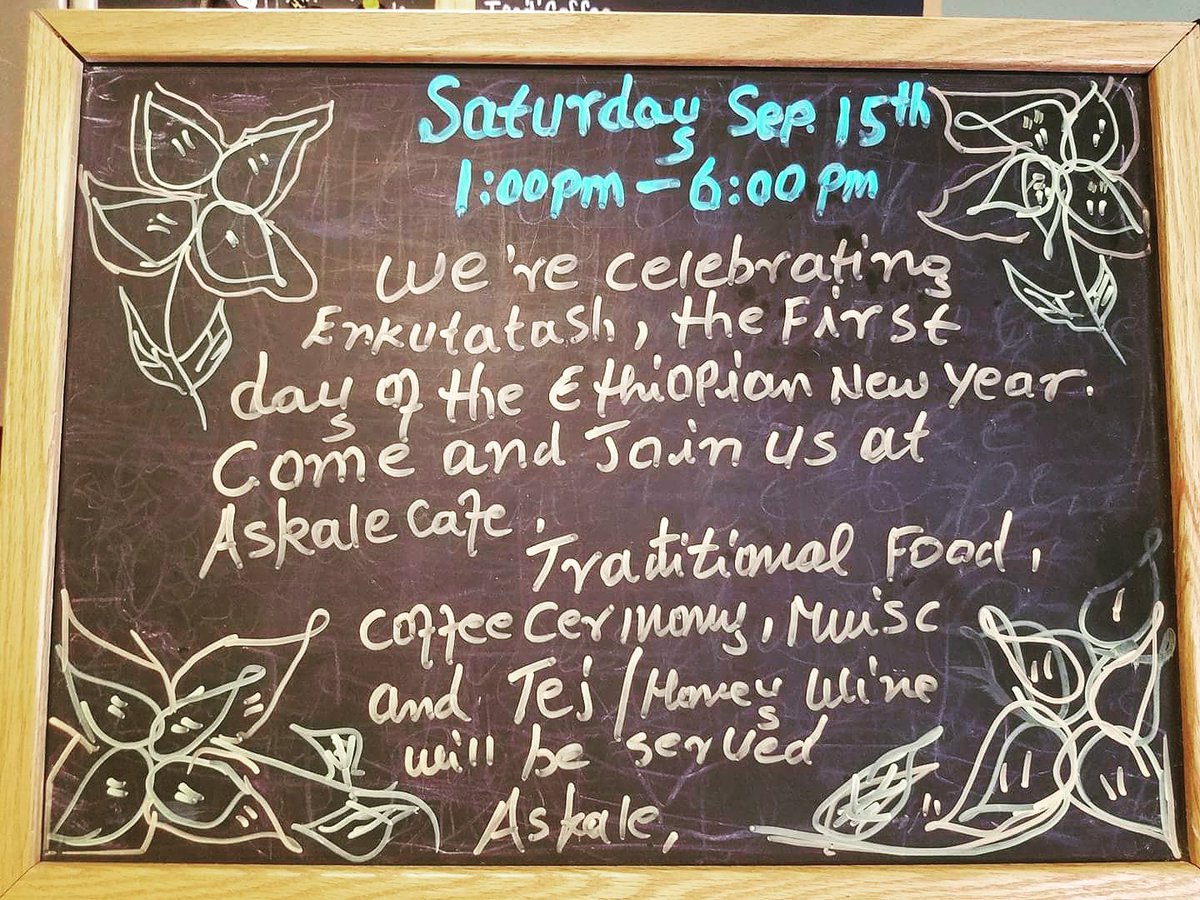 Saturday Sep. 15th
1:00pm – 6:00pm
We're celebrating
Enkutatash, the First
day of the Ethiopian New Year.
Come and Join us at
Askale cafe.
Traditional Food,
Coffee Cerimony, Muisc
and Tej/Honey Wine
will be served
Askale,